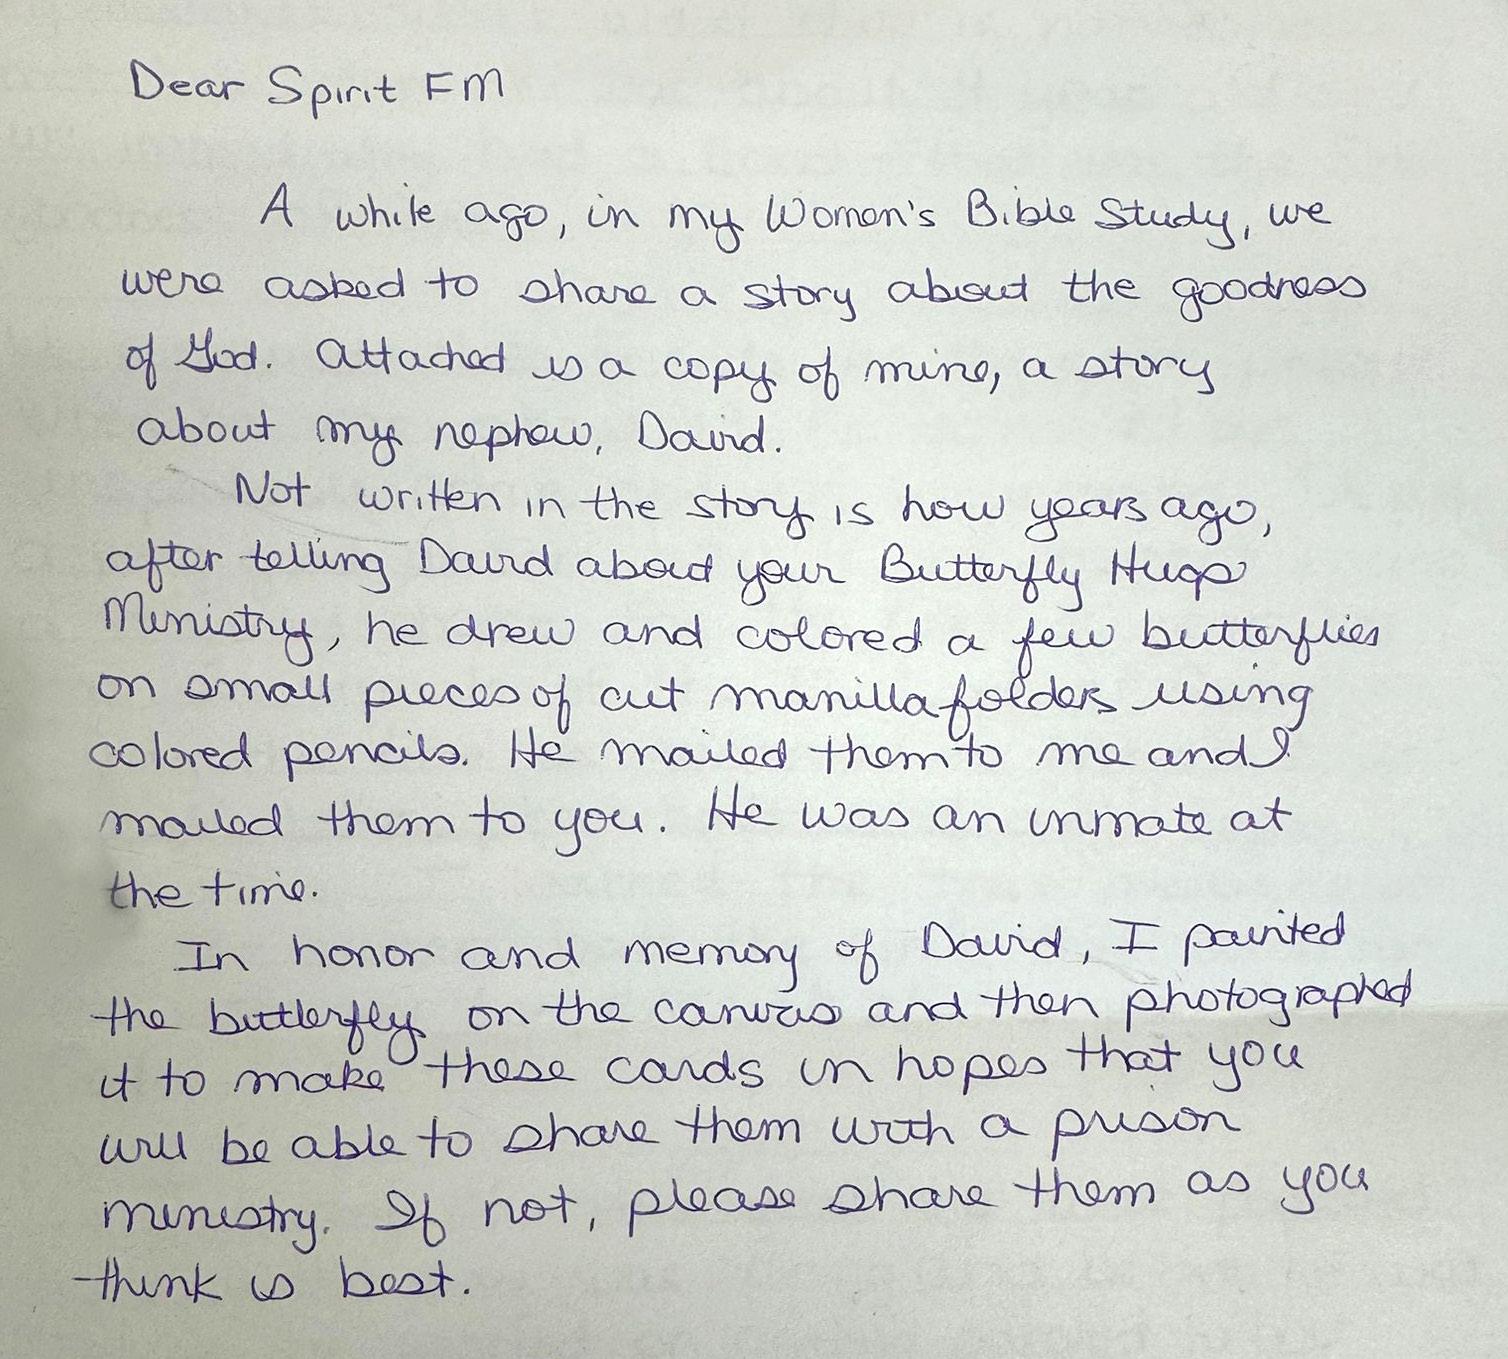 Dear Spirit FM
A while ago, in my Women's Bible Study, we
were asked to share a story about the goodness
of God. Attached is a copy of mine, a story
about my nephew, David.
Not written in the story is how years ago,
after telling David about your Butterfly Hugs
Ministry, he drew and colored a few butterflies
on small pieces of cut manilla folders using
colored pencils. He mailed them to me and I
mailed them to you. He was an inmate at
the time.
In honor and memory of David, I painted
the butterfly on the canvas and then photographed
it to make these cards in hopes that you
will be able to share them with a prison
ministry. If not, please share them as you
think is best.